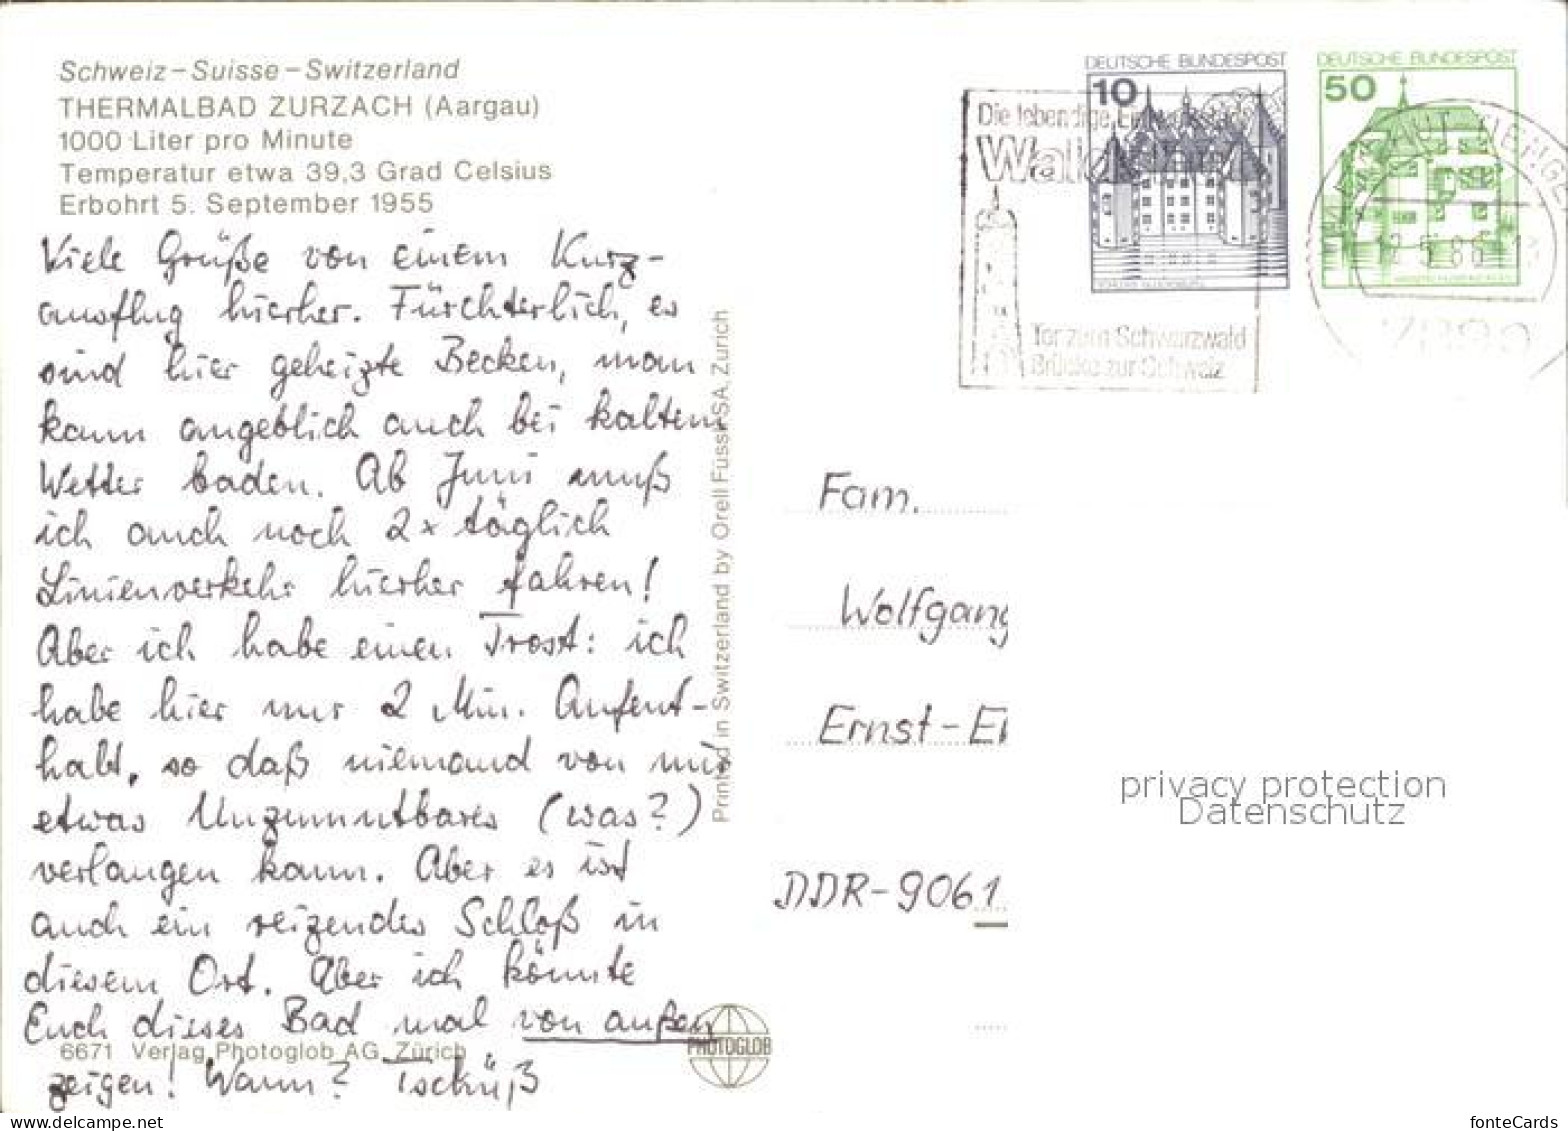 Schweiz – Suisse – Switzerland
THERMALBAD ZURZACH (Aargau)
1000 Liter pro Minute
Temperatur etwa 39,3 Grad Celsius
Erbohrt 5. September 1955
Viele Grüße von einem Kurz-
ausflug hierher. Fürchterlich, es
sind hier geheizte Becken, man
kann angeblich auch bei kaltem
Wetter baden. Ab Juni muß
ich auch noch 2x täglich
Linienverkehr hierher fahren!
Aber ich habe einen Trost: ich
habe hier nur 2 Min. Aufent-
halt, so daß niemand von mir
etwas Unzumutbares (was?)
verlangen kann. Aber es ist
auch ein reizendes Schloß in
diesem Ort. Aber ich könnte
Euch dieses Bad mal von außen
zeigen! Wann? Tschüß
6671 Verlag Photoglob AG, Zürich
Printed in Switzerland by Orell Füssli SA, Zürich
PHOTOGLOB
DEUTSCHE BUNDESPOST
10
DEUTSCHE BUNDESPOST
50
Die lebendige
Tor zum Schwarzwald
Brücke zur Schweiz
Fam.
Wolfgang
Ernst-
DDR-9061
privacy protection
Datenschutz
www.delcampe.net
fonteCards